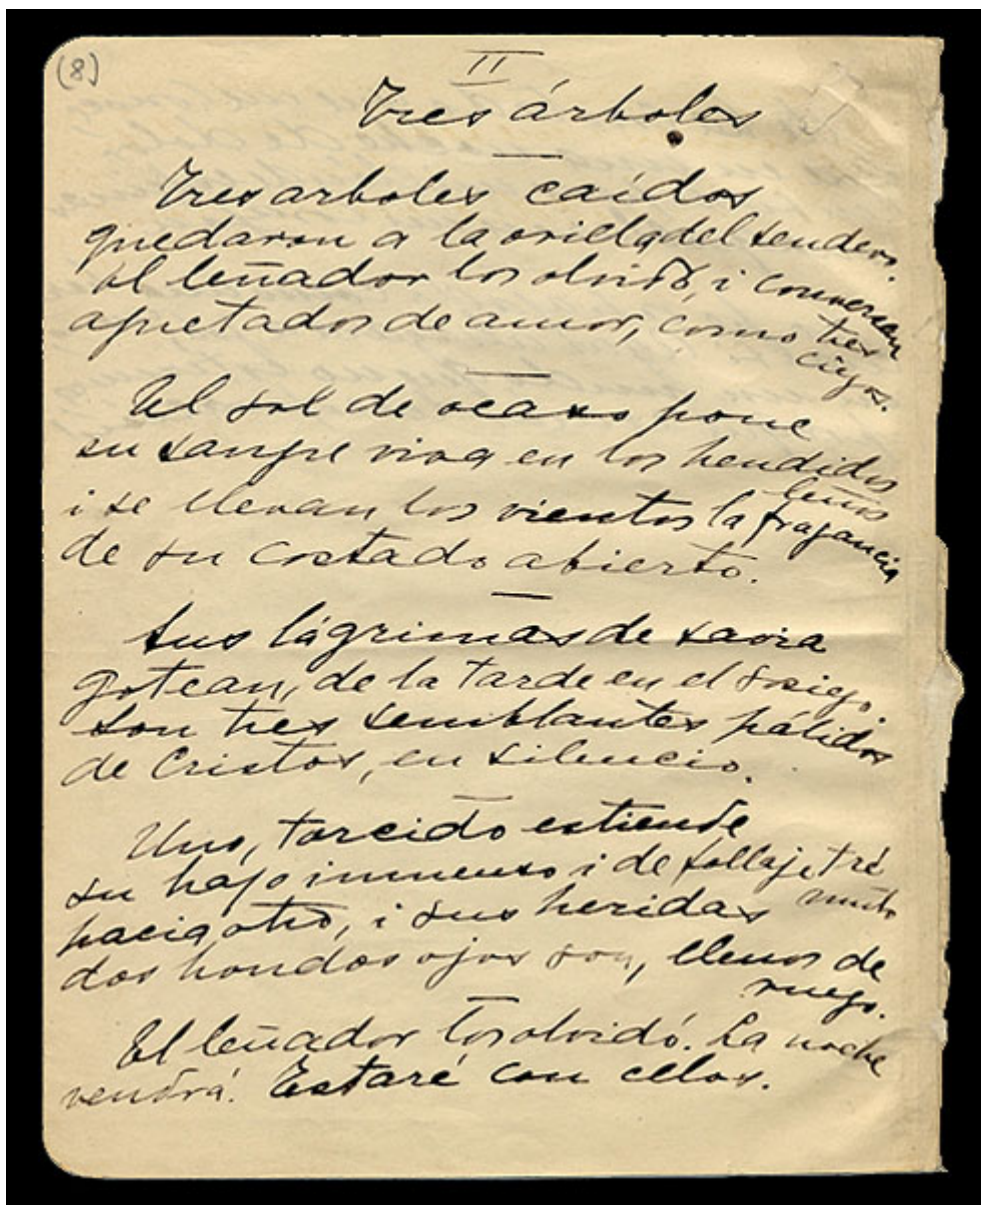 (8)
II
Tres árboles
Tres arboles caídos
quedaron a la orilla del sendero.
El leñador los olvidó, i conversan
apretados de amor, como tres
ciegos.
El sol de ocaso pone
su sangre viva en los hendidos
leños
i se llevan los vientos la fragancia
de su costado abierto.
Sus lágrimas de savia
gotean, de la tarde en el sosiego.
Son tres semblantes pálidos
de Cristos, en silencio.
Uno, torcido estiende
su bajo inmenso i de follaje tré
mulo
hacia otro, i sus heridas
dos hondos ojos son, llenos de
ruego.
El leñador los olvidó. La noche
vendrá. Estaré con ellos.